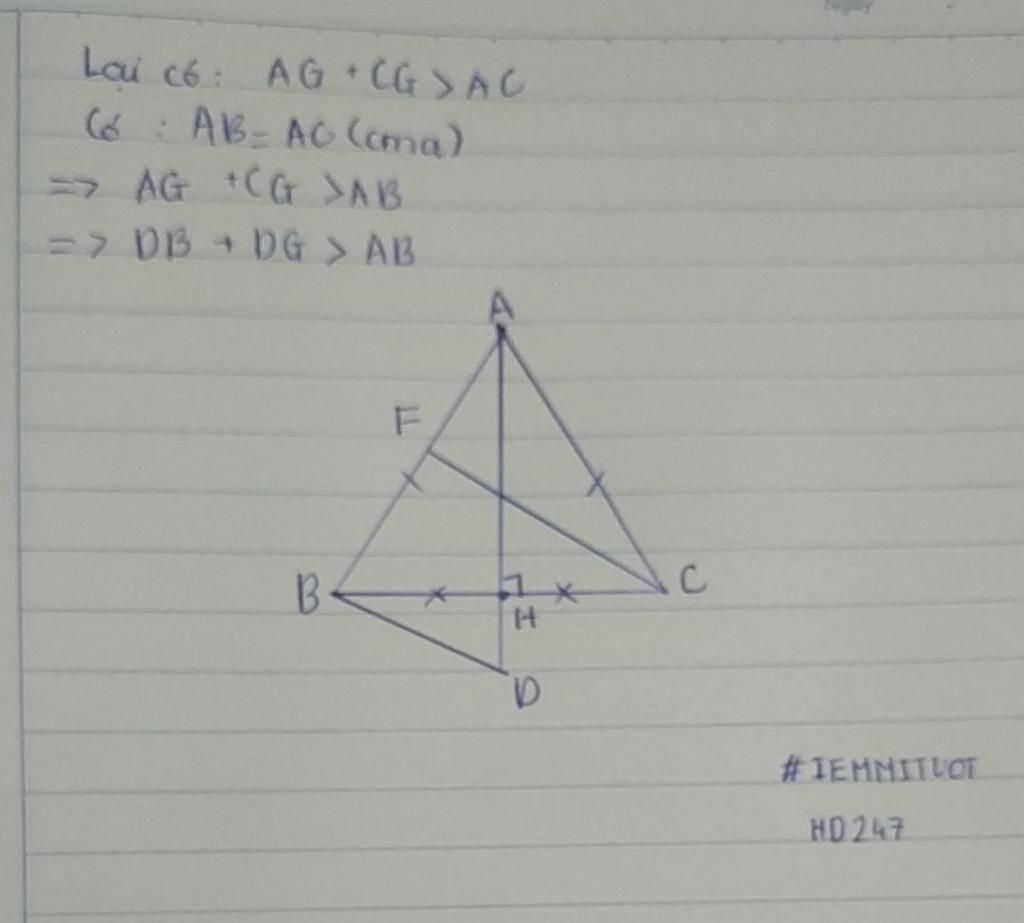 Lại có: AG + CG > AC
Có : AB = AC (cma)
=> AG + CG > AB
=> DB + DG > AB
A
F
B
C
H
D
#IEMMITUOT
HD247